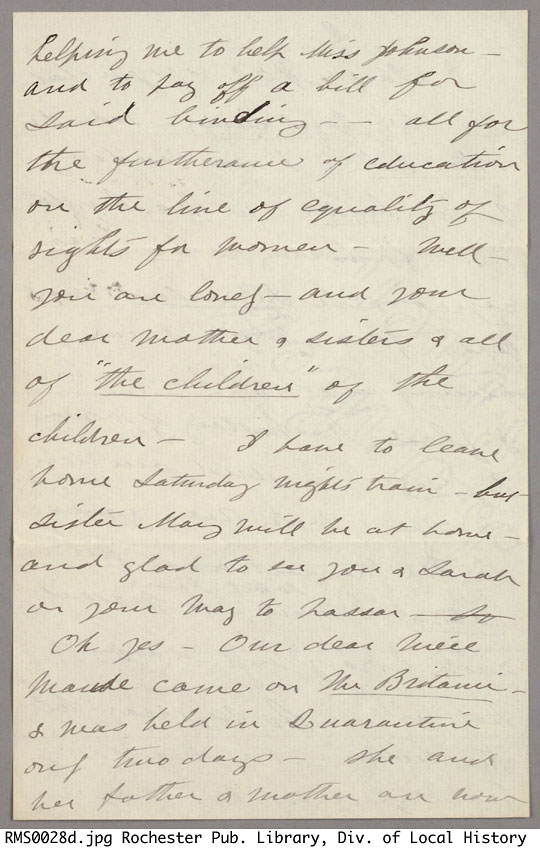 helping me to help Miss Johnson –
and to pay off a bill for
said binding – – all for
the furtherance of education
on the line of equality of
rights for women – Well –
you are lovely – and your
dear mother & sisters & all
of "the children" of the
children – I have to leave
home Saturday nights train – but
sister Mary will be at home –
and glad to see you & Sarah
on your way to Vassar –
Oh yes – Our dear niece
Maude came on The Britanic –
& was held in Quarantine
only two days – she and
her father & mother are now
RMS0028d.jpg Rochester Pub. Library, Div. of Local History